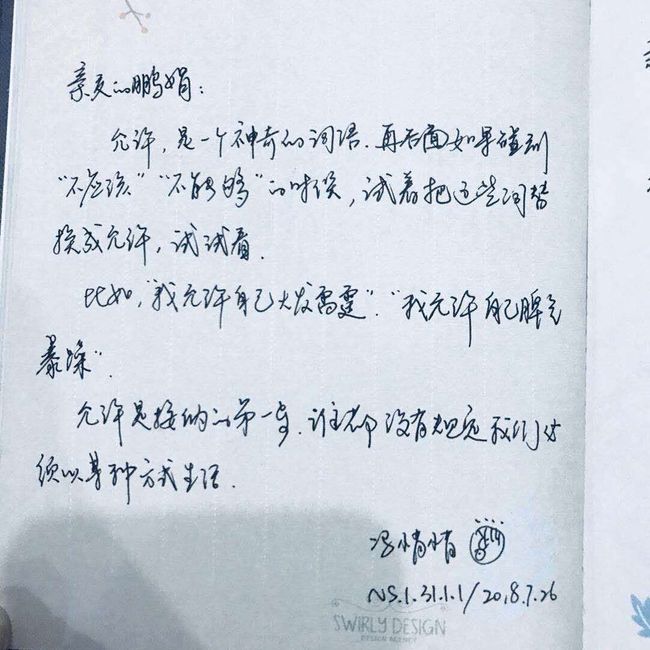 亲爱的鹏娟：
允许，是一个神奇的词语．再后面如果碰到
“不应该”“不能够”的时候，试着把这些词替
换成允许，试试看．
比如，“我允许自己大发雷霆”．“我允许自己脾气
暴躁”．
允许是接纳的第一步．谁都没有规定我们必
须以某种方式生活．
冯悄悄
NS.1.31.1.1/2018.7.26
SWIRLY DESIGN
DESIGN AGENCY